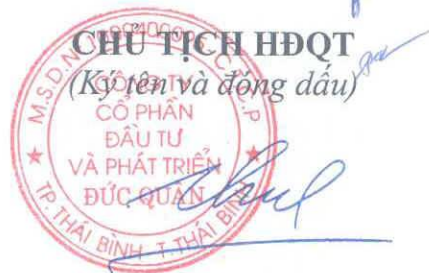 CHỦ TỊCH HĐQT
(Ký tên và đóng dấu)
CÔNG TY
CỔ PHẦN
ĐẦU TƯ
VÀ PHÁT TRIỂN
ĐỨC QUÂN
TP.THÁI BÌNH - T.THÁI BÌNH